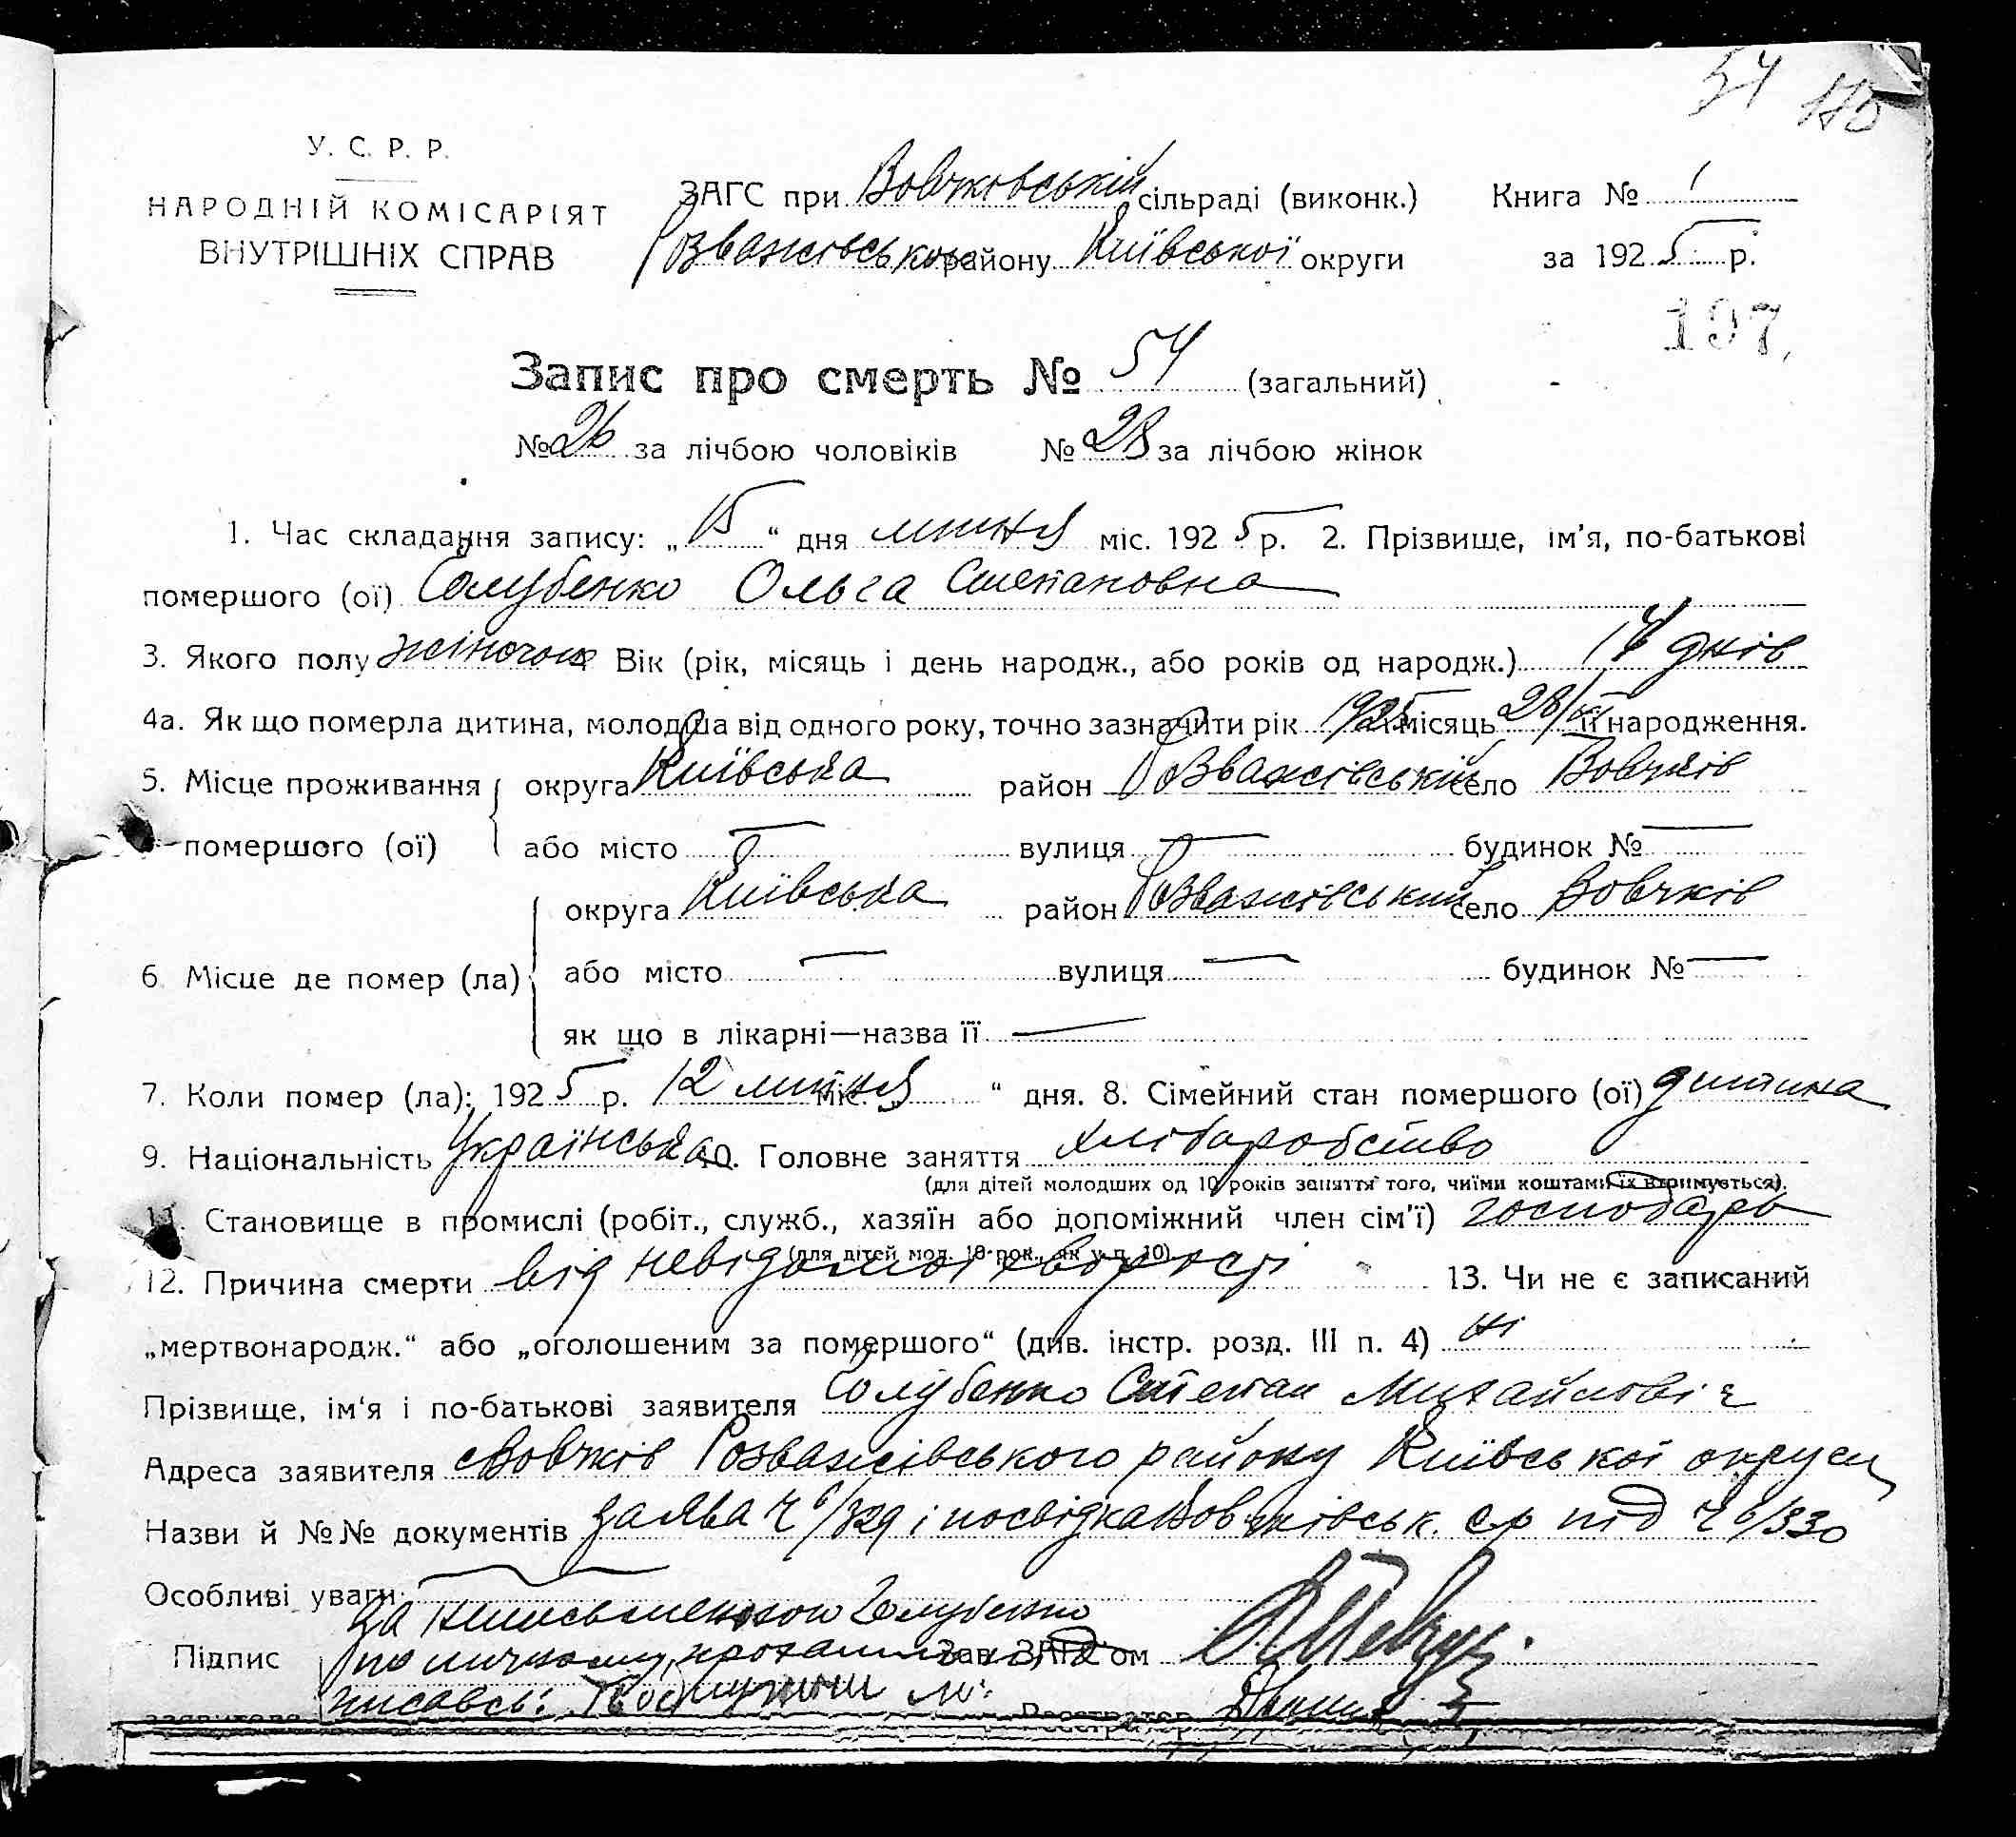 54 110
У. С. Р. Р.
НАРОДНІЙ КОМІСАРІЯТ
ВНУТРІШНІХ СПРАВ
ЗАГС при Вовчковській сільраді (виконк.) Книга № 1
Розважівського району Київської округи за 1925 р.
197
Запис про смерть № 54 (загальний)
№ 26 за лічбою чоловіків № 28 за лічбою жінок
1. Час складання запису: „15“ дня липня міс. 1925 р. 2. Прізвище, ім'я, по-батькові
помершого (ої) Голубенко Ольга Степановна
3. Якого полу жіночого Вік (рік, місяць і день народж., або років од народж.) 14 днів
4а. Як що померла дитина, молодша від одного року, точно зазначити рік 1925 місяць 28/VI її народження.
5. Місце проживання округа Київська район Розважівський село Вовчків
помершого (ої) або місто — вулиця — будинок № —
округа Київська район Розважівський село Вовчків
6 Місце де помер (ла) або місто — вулиця — будинок № —
як що в лікарні—назва її —
7. Коли помер (ла): 1925 р. 12 липня міс. „ “ дня. 8. Сімейний стан помершого (ої) дитина
9. Національність Українська 10. Головне заняття хліборобство
(для дітей молодших од 10 років заняття того, чиїми коштами їх втримується).
11. Становище в промислі (робіт., служб., хазяїн або допоміжний член сім'ї) господарь
(для дітей мол. 10-рок., як у п. 10)
12. Причина смерти від невідомої хворости 13. Чи не є записаний
„мертвонародж.“ або „оголошеним за помершого“ (див. інстр. розд. III п. 4) ні
Прізвище, ім'я і по-батькові заявителя Голубенко Степан Михайловіч
Адреса заявителя с Вовчків Розважівського району Київської округи
Назви й №№ документів заява ч 6/329 і посвідка Вовчківськ. с/р під ч 6/330
Особливі уваги
за неписьменного Голубенко
Підпис по личному проханню Зав. ЗАГС'ом
заявителя писавсь: Реєстратор